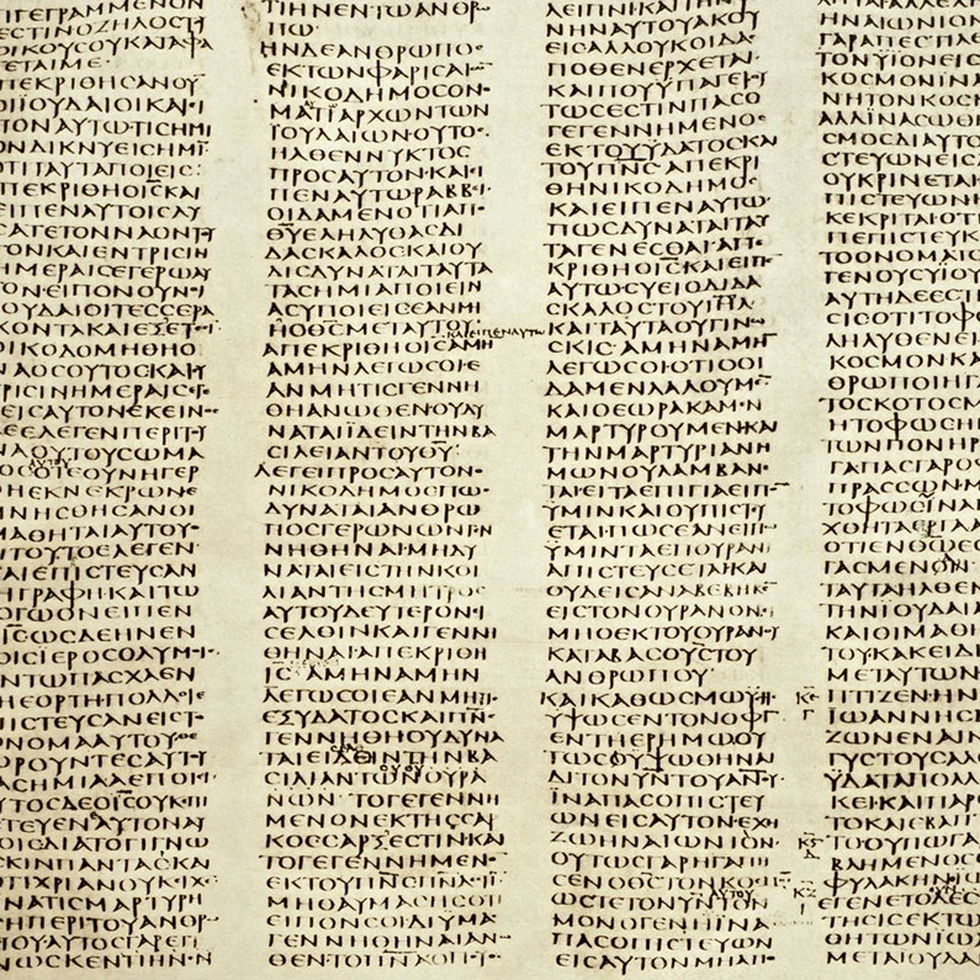 ΓΕΓΡΑΜΜΕΝΟΝ
ΕCΤΙΝΟΖΗΛΟCΤ
ΟΙΚΟΥCΟΥΚΑΤΑΦΑ
ΓΕΤΑΙΜΕ
ΠΕΚΡΙΘΗCΑΝΟΥ
ΟΙΪΟΥΔΑΙΟΙΚΑΙΕΙ
ΤΟΝΑΥΤΩΤΙCΗΜΙ
ΟΝΔΙΚΝΥΕΙCΗΜΙ
ΟΤΙΤΑΥΤΑΠΟΙΕΙC
ΠΕΚΡΙΘΗΟΙC̅ΚΑΙ
ΕΙΠΕΝΑΥΤΟΙCΛΥ
CΑΤΕΤΟΝΝΑΟΝΤΥ
ΤΟΝΚΑΙΕΝΤΡΙCΙΝ
ΗΜΕΡΑΙCΕΓΕΡΩΑΥ
ΤΟΝΕΙΠΟΝΟΥΝΟΙ
ΟΥΔΑΙΟΙΤΕCCΕΡΑ
ΚΟΝΤΑΚΑΙΕΞΕΤΕ
ΟΙΚΟΔΟΜΗΘΗΟ
ΝΑΟCΟΥΤΟCΚΑΙCΥ
ΡΙCΙΝΗΜΕΡΑΙCΕΓΕ
ΕΙCΑΥΤΟΝΕΚΕΙΝΟC
ΔΕΕΛΕΓΕΝΠΕΡΙΤΟΥ
ΝΑΟΥΤΟΥCΩΜΑ
ΤΟCΟΤΕΟΥΝΗΓΕΡ
ΘΗΕΚΝΕΚΡΩΝΕ
ΜΝΗCΘΗCΑΝΟΙ
ΜΑΘΗΤΑΙΑΥΤΟΥ
ΤΙΤΟΥΤΟΕΛΕΓΕΝ
ΚΑΙΕΠΙCΤΕΥCΑΝ
ΗΓΡΑΦΗΚΑΙΤΩ
ΟΓΩΟΝΕΙΠΕΝ
ΙC̅ΩCΔΕΗΝΕΝ
ΟΙCΙΕΡΟCΟΛΥΜΟΙC
ΝΤΩΠΑCΧΑΕΝ
ΗΕΟΡΤΗΠΟΛΛΟΙΕ
ΠΙCΤΕΥCΑΝΕΙCΤΟ
ΟΝΟΜΑΑΥΤΟΥΘΕ
ΩΡΟΥΝΤΕCΑΥΤΟΥ
ΑCΗΜΙΑΑΕΠΟΙΕΙ
ΥΤΟCΔΕΟΙC̅ΟΥΚΕΠΙ
CΤΕΥΕΝΑΥΤΟΝΑΥ
ΟΙCΔΙΑΤΟΓΙΓΝΩ
CΚΙΝΠΑΝΤΑCΚΑΙ
ΟΤΙΧΡΙΑΝΟΥΚΙΧΕ
ΝΑΤΙCΜΑΡΤΥΡΗ
CΗΠΕΡΙΤΟΥΑΝΘΡ
ΠΟΥΑΥΤΟCΓΑΡΕΓΙ
ΝΩCΚΕΝΤΙΗΝΕΝ
ΤΙΗΝΕΝΤΩΑΝΘΡ
ΠΩ
ΗΝΔΕΑΝΘΡΩΠΟC
ΕΚΤΩΝΦΑΡΙCΑΙΩ
ΝΙΚΟΔΗΜΟCΟΝΟ
ΜΑΤΙΑΡΧΩΝΤΩΝ
ΪΟΥΔΑΙΩΝΟΥΤΟC
ΗΛΘΕΝΝΥΚΤΟC
ΠΡΟCΑΥΤΟΝΚΑΙΕΙ
ΠΕΝΑΥΤΩΡΑΒΒΕΙ
ΟΙΔΑΜΕΝΟΤΙΑΠΟ
Θ̅Υ̅ΕΛΗΛΥΘΑCΔΙ
ΔΑCΚΑΛΟCΚΑΙΟΥ
ΔΙCΔΥΝΑΤΑΙΤΑΥΤΑ
ΤΑCΗΜΙΑΠΟΙΕΙΝ
ΑCΥΠΟΙΕΙCΕΑΝΜΗ
ΗΟΘC̅ΜΕΤΑΥΤΟΥ
ΚΑΙΕΙΠΕΝΑΥΤΩ
ΑΠΕΚΡΙΘΗΟΙC̅ΑΜΗ
ΑΜΗΝΛΕΓΩCΟΙΕ
ΑΝΜΗΤΙCΓΕΝΝΗ
ΘΗΑΝΩΘΕΝΟΥΔΥ
ΝΑΤΑΙΪΔΕΙΝΤΗΝΒΑ
CΙΛΕΙΑΝΤΟΥΘ̅Υ̅
ΛΕΓΕΙΠΡΟCΑΥΤΟΝΟ
ΝΙΚΟΔΗΜΟCΠΩC
ΔΥΝΑΤΑΙΑΝΘΡΩ
ΠΟCΓΕΡΩΝΩΝΓΕΝ
ΝΗΘΗΝΑΙΜΗΔΥ
ΝΑΤΑΙΕΙCΤΗΝΚΟΙ
ΛΙΑΝΤΗCΜΗΤΡΟC
ΑΥΤΟΥΔΕΥΤΕΡΟΝΕΙ
CΕΛΘΙΝΚΑΙΓΕΝΝΗ
ΘΗΝΑΙΑΠΕΚΡΙΘΗ
ΙC̅ΑΜΗΝΑΜΗΝ
ΛΕΓΩCΟΙΕΑΝΜΗΤΙC
ΕΞΥΔΑΤΟCΚΑΙΠΝ̅C̅
ΓΕΝΝΗΘΗΟΥΔΥΝΑ
ΤΑΙΕΙΔΕΙΝΤΗΝΒΑ
CΙΛΙΑΝΤΩΝΟΥΡΑ
ΝΩΝΤΟΓΕΓΕΝΝΗ
ΜΕΝΟΝΕΚΤΗCCΑΡ
ΚΟCCΑΡΞΕCΤΙΝΚΑΙ
ΤΟΓΕΓΕΝΝΗΜΕΝΟ
ΕΚΤΟΥΠΝ̅C̅ΠΝ̅ΑΕCΤΙ
ΜΗΘΑΥΜΑCΗCΟΤΙ
ΕΙΠΟΝCΟΙΔΙΥΜΑC
ΓΕΝΝΗΘΗΝΑΙΑΝΩ
ΘΕΝΤΟΠΝ̅Α̅ΟΠΟΥ
ΛΕΙΠΝΙΚΑΙΤΗΝΦΩ
ΝΗΝΑΥΤΟΥΑΚΟΥ
ΕΙCΑΛΛΟΥΚΟΙΔΑC
ΠΟΘΕΝΕΡΧΕΤΑΙ
ΚΑΙΠΟΥΫΠΑΓΕΙΟΥ
ΤΩCΕCΤΙΝΠΑCΟ
ΓΕΓΕΝΝΗΜΕΝΟC
ΕΚΤΟΥΫΔΑΤΟCΚΑΙ
ΤΟΥΠΝ̅C̅ΑΠΕΚΡΙ
ΘΗΝΙΚΟΔΗΜΟC
ΚΑΙΕΙΠΕΝΑΥΤΩ
ΠΩCΔΥΝΑΤΑΙΤΑΥ
ΤΑΓΕΝΕCΘΑΙΑΠΕ
ΚΡΙΘΗΟΙC̅ΚΑΙΕΙΠΕ
ΑΥΤΩCΥΕΙΟΔΙΔΑ
CΚΑΛΟCΤΟΥΙΗΛ̅
ΚΑΙΤΑΥΤΑΟΥΓΙΝΩ
CΚΙCΑΜΗΝΑΜΗ
ΛΕΓΩCΟΙΟΤΙΟΟΙ
ΔΑΜΕΝΛΑΛΟΥΜΕ
ΚΑΙΟΕΩΡΑΚΑΜΕΝ
ΜΑΡΤΥΡΟΥΜΕΝΚΑΙ
ΤΗΝΜΑΡΤΥΡΙΑΝΗ
ΜΩΝΟΥΛΑΜΒΑΝΕ
ΤΑΙΕΙΤΑΕΠΙΓΙΑΕΙΠΟ
ΫΜΙΝΚΑΙΟΥΠΙCΤΕΥ
ΕΤΑΙΠΩCΕΑΝΕΙΠΩ
ΫΜΙΝΤΑΕΠΟΥΡΑΝΙ
ΑΠΙCΤΕΥCΕΤΑΙΚΑΙ
ΟΥΔΕΙCΑΝΑΒΕΒΗΚΕ
ΕΙCΤΟΝΟΥΡΑΝΟΝΕΙ
ΜΗΟΕΚΤΟΥΟΥΡΑΝΟΥ
ΚΑΤΑΒΑCΟΥC̅ΤΟΥ
ΑΝΘΡΩΠΟΥ
ΚΑΙΚΑΘΩCΜΩΫCΗC
ΥΨΩCΕΝΤΟΝΟΦΙ
ΕΝΤΗΕΡΗΜΩΟΥ
ΤΩCΟΥΨΩΘΗΝΑΙ
ΔΙΤΟΝΥΝ̅ΤΟΥΑΝΟΥ
ΪΝΑΠΑCΟΠΙCΤΕΥ
ΩΝΕΙCΑΥΤΟΝΕΧΗ
ΖΩΗΝΑΙΩΝΙΟΝ
ΟΥΤΩCΓΑΡΗΓΑΠΗ
CΕΝΟΘC̅ΤΟΝΚΟCΜΟ
ΩCΤΕΤΟΝΥΝ̅ΤΟΝ
ΜΟΝΟΓΕΝΗΪΝΑ
ΠΑCΟΠΙCΤΕΥΩΝ
ΕΙCΑΥΤΟΝΜΗΑΠΟ
ΗΝΑΙΩΝΙΟΝ
ΓΑΡΑΠΕCΤΙΛΕ
ΤΟΝΥΪΟΝΕΙC
ΚΟCΜΟΝΙΝΑ
ΝΗΤΟΝΚΟCΜ
ΑΛΛΙΝΑCΩΘΗ
CΜΟCΔΙΑΥΤΟ
CΤΕΥΩΝΕΙCΑ
ΟΥΚΡΙΝΕΤΑΙ
ΠΙCΤΕΥΩΝΗ
ΚΕΚΡΙΤΑΙΟΤΙ
ΠΕΠΙCΤΕΥΚ
ΤΟΟΝΟΜΑΤΟ
ΓΕΝΟΥCΥΪΟΥ
ΑΥΤΗΔΕΕCΤΙ
CΙCΟΤΙΤΟΦΩ
ΛΗΛΥΘΕΝΕΙ
ΚΟCΜΟΝΚΑΙ
ΘΡΩΠΟΙΗΓΑ
ΤΟCΚΟΤΟCΜ
ΗΤΟΦΩCΗ
ΤΩΝΠΟΝΗΡ
ΓΑΠΑCΓΑΡΟΦ
ΠΡΑCCΩΝΜΙ
ΤΟΦΩCΪΝΑ
ΧΘΗΤΑΕΡΓΑ
ΟΤΙΕΝΘΩΕC
ΓΑCΜΕΝΟΝ
ΤΑΥΤΑΗΛΘΕΝ
ΤΗΝΪΟΥΔΑΙΑ
ΚΑΙΟΙΜΑΘΗ
ΤΟΥΚΑΚΕΙΔΙ
ΜΕΤΑΥΤΩΝ
ΠΤΙΖΕΝΗΝ
ΪΩΑΝΝΗCΒ
ΖΩΝΕΝΑΙΝ
ΓΥCΤΟΥCΑΛ
ΫΔΑΤΑΠΟΛΛΑ
ΚΕΙΚΑΙΠΑΡΕ
ΤΟΚΑΙΕΒΑΠΤ
ΤΟΟΥΠΩΓΑΡ
ΒΛΗΜΕΝΟC
ΦΥΛΑΚΗΝΪΩ
ΕΓΕΝΕΤΟΔΕC
ΤΗCΙCΕΚΤΩ
ΘΗΤΩΝΪΩΑ
ΜΕΤΑΪΟΥΔΑΙ